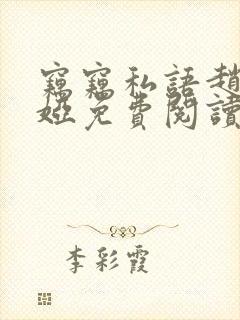 竊竊私語趙
婭免費閱讀
李彩霞